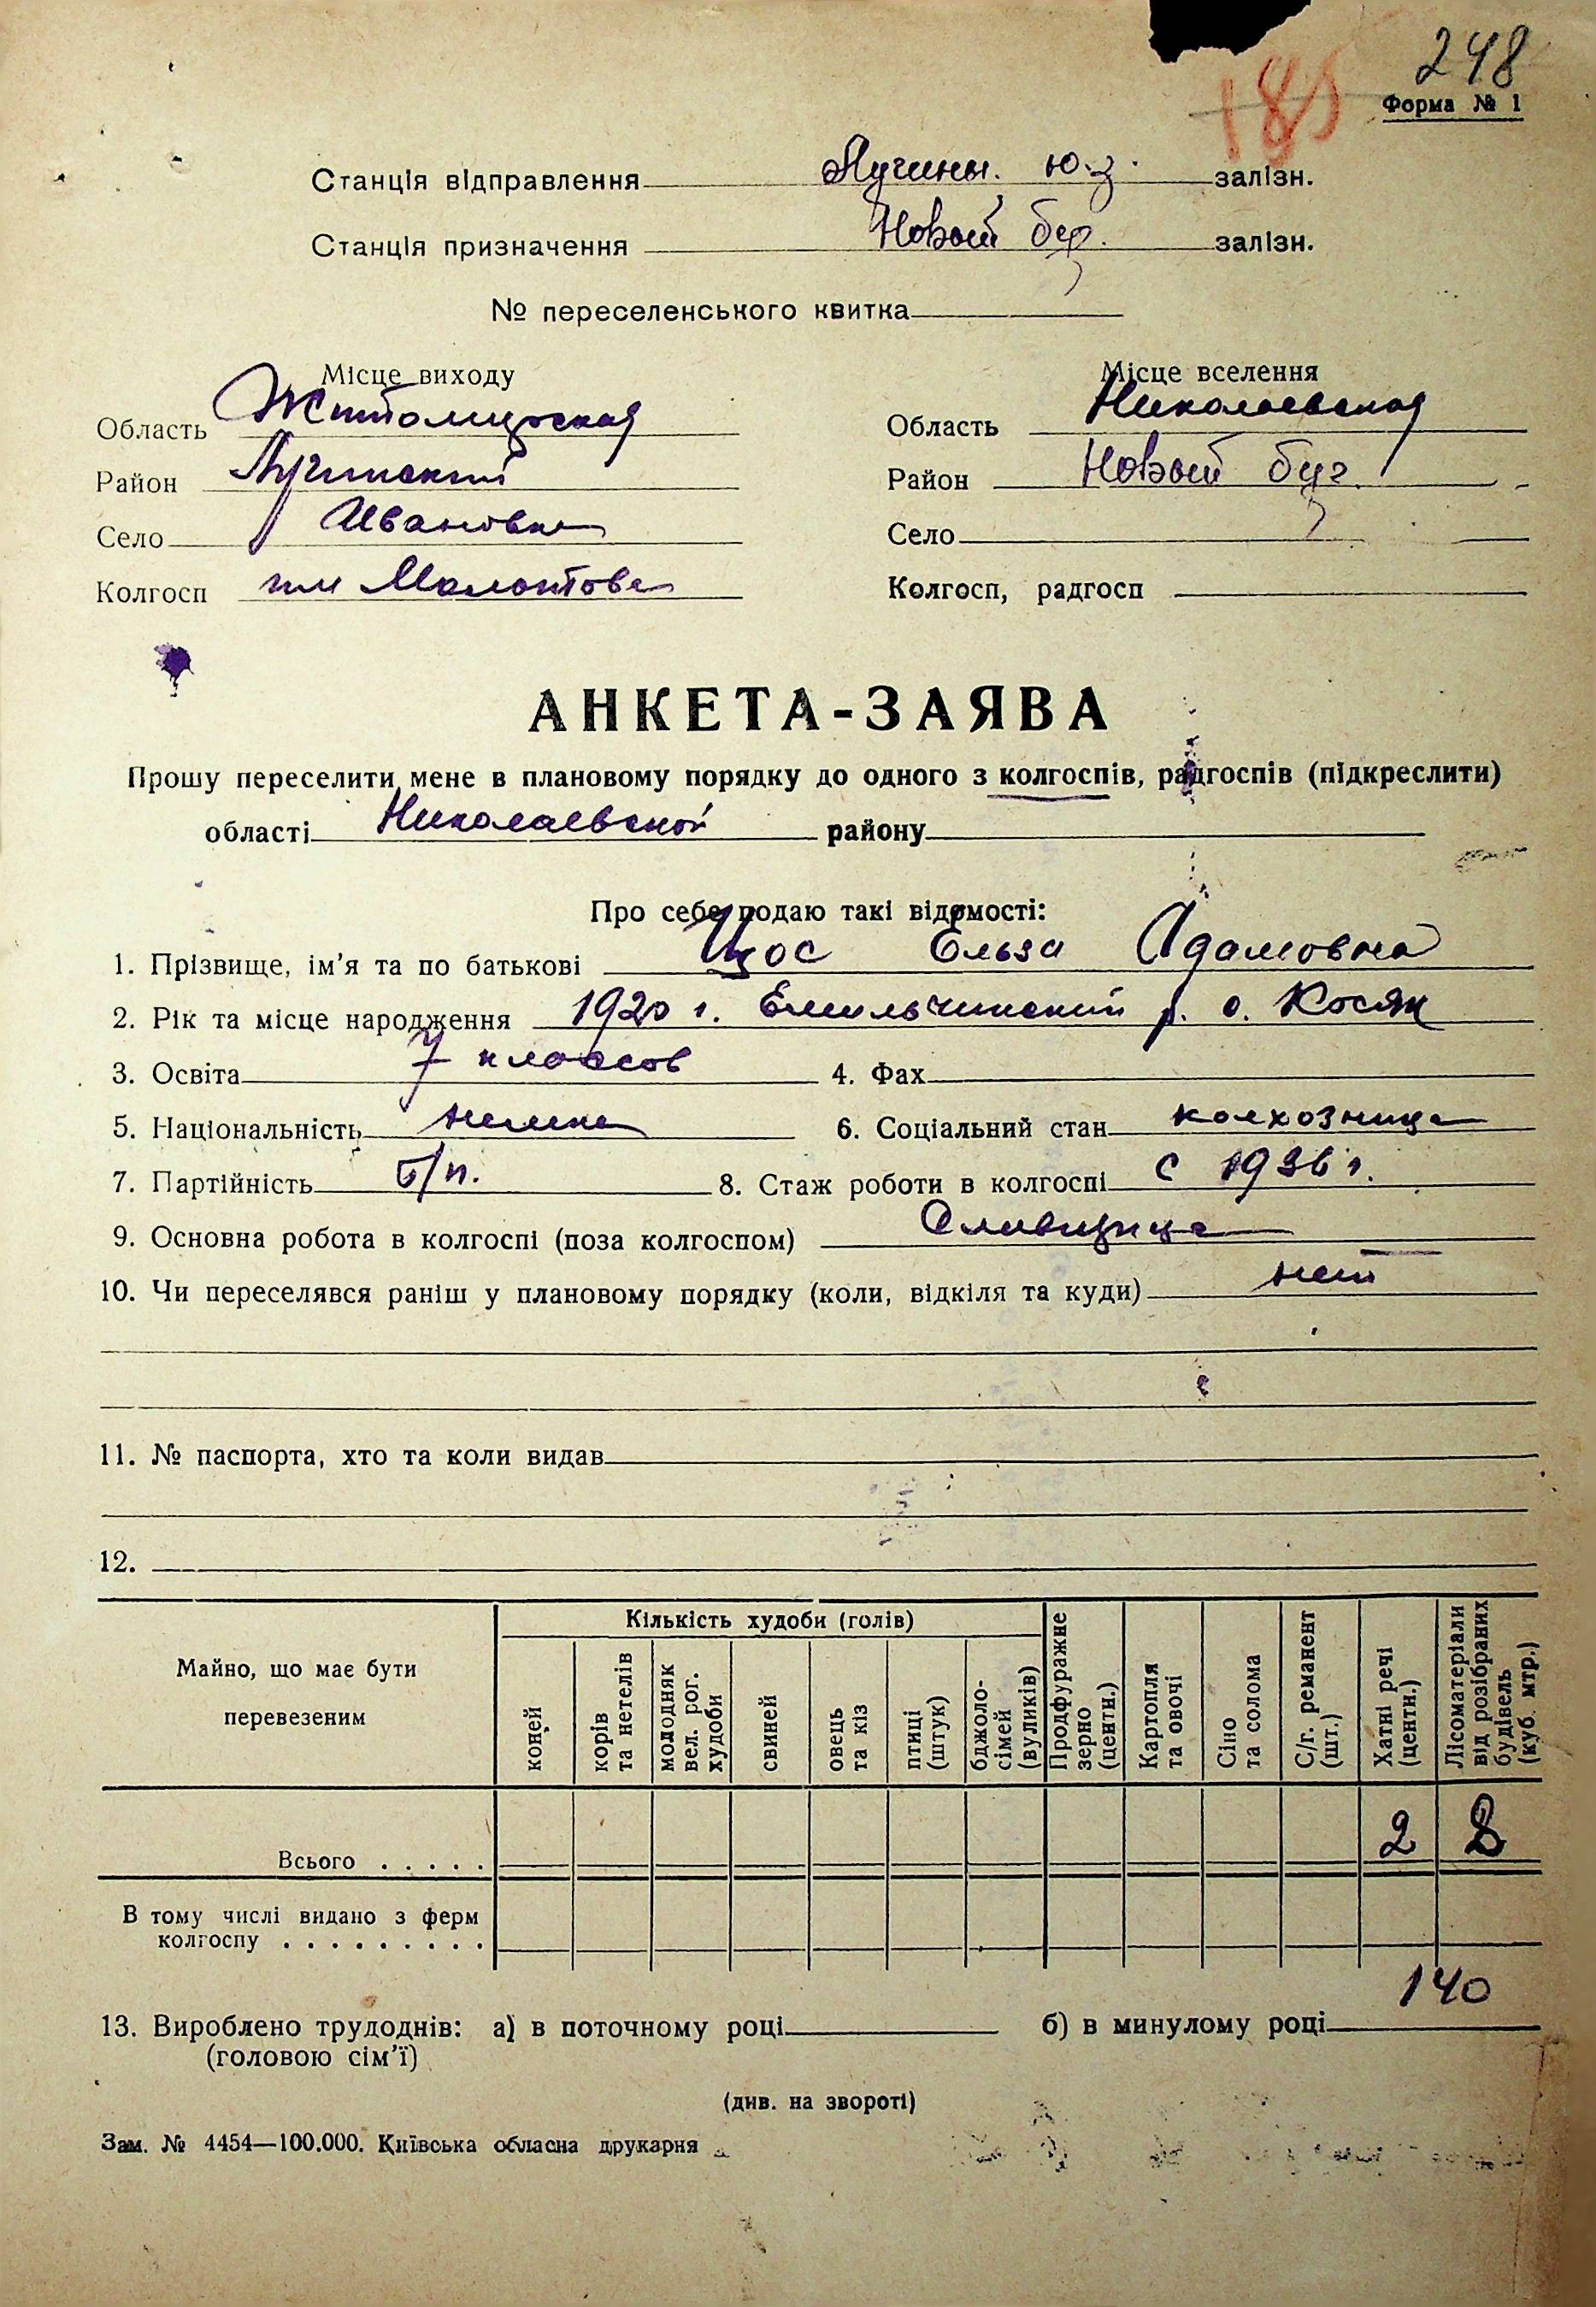 248
185
Форма № 1
Станція відправлення Лучины. Ю.З. залізн.
Станція призначення Новый буг. залізн.
№ переселенського квитка
Місце виходу
Область Житомирская
Район Лугинский
Село Ивановка
Колгосп им Молотова
Місце вселення
Область Николаевская
Район Новый буг.
Село
Колгосп, радгосп
АНКЕТА-ЗАЯВА
Прошу переселити мене в плановому порядку до одного з колгоспів, радгоспів (підкреслити)
області Николаевской району
Про себе подаю такі відомості:
1. Прізвище, ім'я та по батькові Цос Ельза Адамовна
2. Рік та місце народження 1920 г. Емильчинский р. с. Косяк
3. Освіта 7 классов 4. Фах
5. Національність немка 6. Соціальний стан колхозница
7. Партійність б/п. 8. Стаж роботи в колгоспі с 1936 г.
9. Основна робота в колгоспі (поза колгоспом)
10. Чи переселявся раніш у плановому порядку (коли, відкіля та куди) нет
11. № паспорта, хто та коли видав
12.
Майно, що має бути перевезеним
Кількість худоби (голів)
коней
корів та нетелів
молодняк вел. рог. худоби
свиней
овець та кіз
птиці (штук)
бджоло-сімей (вуликів)
Продфуражне зерно (центн.)
Картопля та овочі
Сіно та солома
С/г. реманент (шт.)
Хатні речі (центн.)
Лісоматеріали від розібраних будівель (куб. мтр.)
Всього . . . . . 2 8
В тому числі видано з ферм
колгоспу . . . . . . . . .
13. Вироблено трудоднів: а) в поточному році б) в минулому році 140
(головою сім'ї)
(див. на звороті)
Зам. № 4454—100.000. Київська обласна друкарня